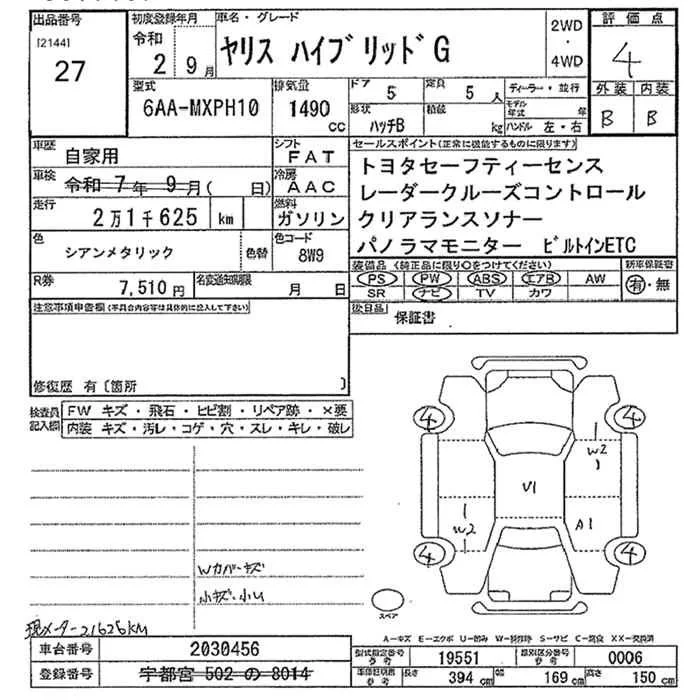 出品番号
[2144]
27
初度登録年月
令和
2 9月
車名・グレード
ヤリス ハイブリッドG
2WD
・
4WD
評価点
4
外装 内装
B B
型式
6AA-MXPH10
排気量
1490
CC
ドア
5
定員
5人
形状
ハッチB
積載
kg
ディーラー・並行
モデル年式 年
ハンドル 左・右
車歴
自家用
シフト
FAT
車検
令和 7年 9月( 日)
冷房
AAC
走行
2万1千625 km
燃料
ガソリン
色
シアンメタリック
色替
色コード
8W9
R券
7,510円
名変通知期限
月 日
セールスポイント(正常に機能するものに限ります)
トヨタセーフティーセンス
レーダークルーズコントロール
クリアランスソナー
パノラマモニター ビルトインETC
装備品(純正品に限り○をつけてください)
新車保証書
PS PW ABS エアB AW
SR ナビ TV カワ
有・無
後日品
保証書
注意事項申告欄(不具合内容等は具体的に記入して下さい)
修復歴 有〔箇所 〕
検査員
記入欄
FW キズ・飛石・ヒビ割・リペア跡・×要
内装 キズ・汚レ・コゲ・穴・スレ・キレ・破レ
Wカバーキズ
小キズ・小U
現メーター21625KM
4
4
W2
U1
W2
A1
4
4
スペア
A-キズ E-エクボ U-凹み W-補修跡 S-サビ C-腐食 XX-交換済
車台番号
2030456
登録番号
宇都宮 502 の 8014
型式指定番号
参考
19551
類別区分番号
参考
0006
車両証明書
参考
長さ
394 cm
幅
169 cm
高さ
150 cm